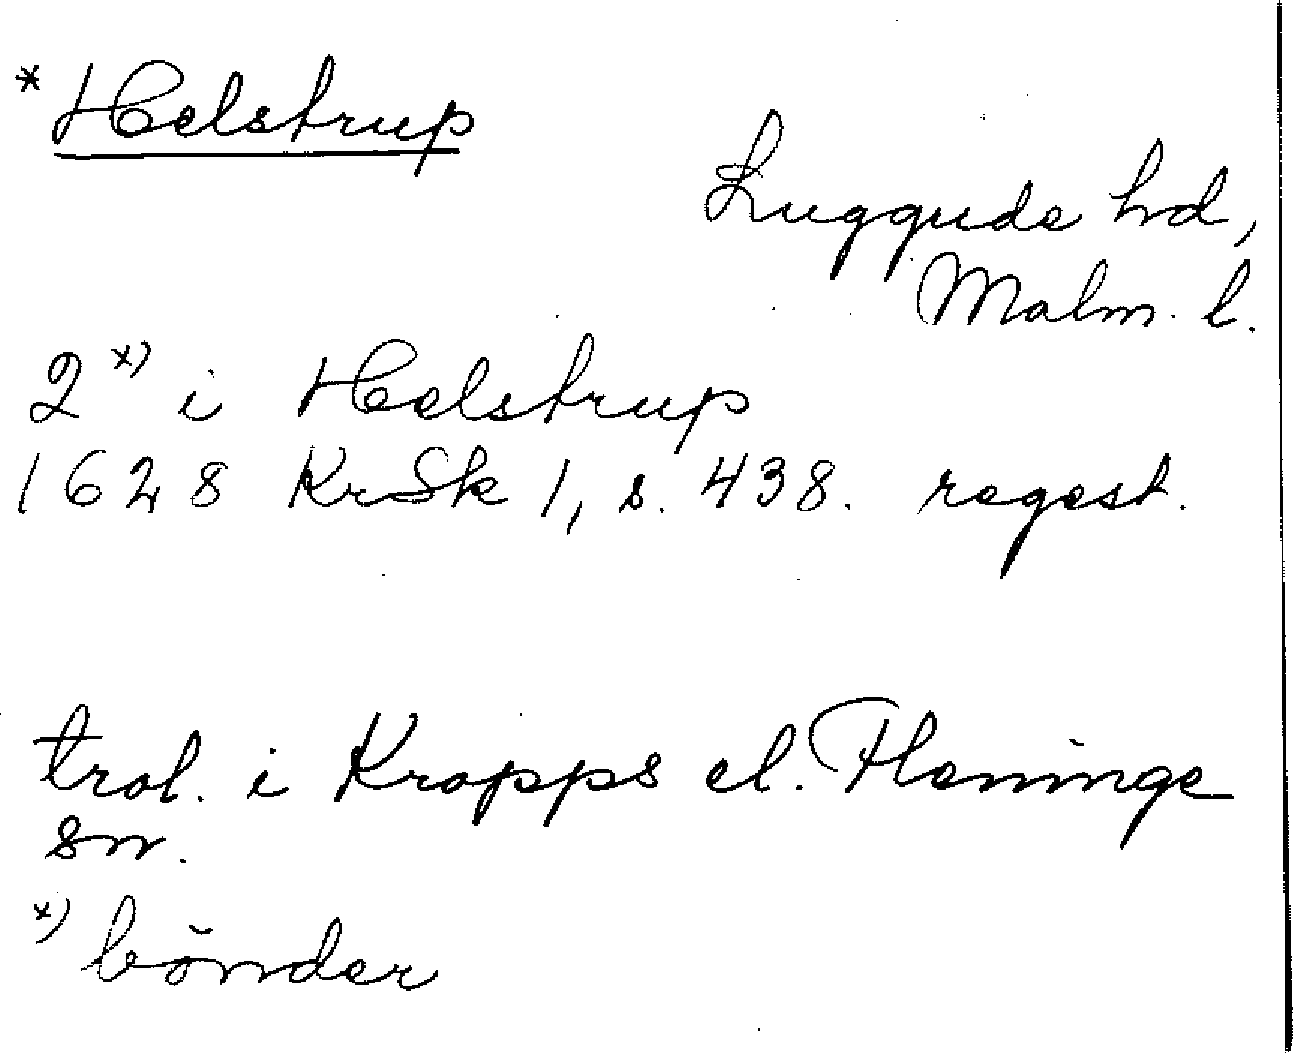 * Helstrup
Luggude hd,
Malm. l.
2 x) i Helstrup
1628 KrSk 1, s. 438. regest.
trol. i Kropps el. Fleninge
sn.
x) bönder